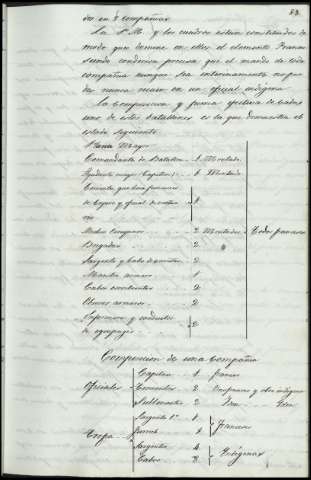 83.
dos en 8 compañias
La P. M. y los cuadros estan constituidos de
modo que domine en ellos el elemento Frances
siendo condicion precisa que el mando de toda
compañia aunque sea interinamente no pue
da nunca recaer en un oficial indigena
La composicion y fuerza efectiva de cada
uno de estos batallones es la que demuestra el
estado siguiente
Plana Mayor
Comandante de Batallon 1 Montado
Ayudante mayor Capitan 1 Montado
Teniente que hace funciones
de Cagero y oficial de vestua 1
rio
Medico cirujano 2 Montados Todos franceses
Brigadas 2
Sargento y cabo de cornetas 2
Maestro armero 1
Cabos 2
Obreros armeros 2
y conductor
de equipages 2
Composicion de una Compañia
Capitan 1 frances
Oficiales Tenientes 2 Un frances y otro indigena
Subtenientes 2 Idem Idem
Sargento 1º 1
Franceses
Tropa
Sargentos 4
Indigenas
Cabos 8